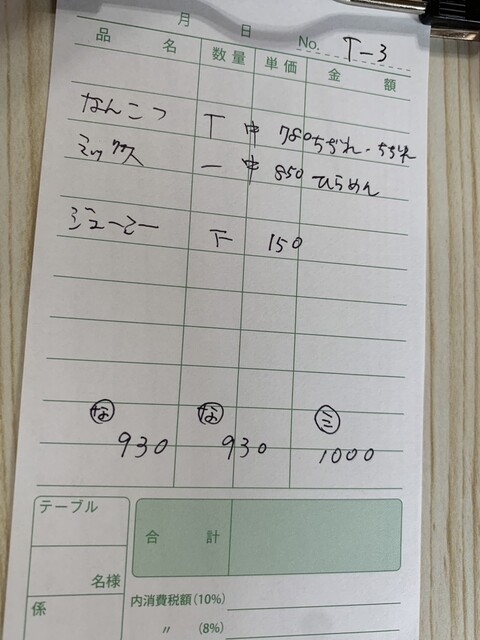 月 日 No. T-3
品名 数量 単価 金額
なんこつ T 中 780 ちぢれ・ちぢれ
ミックス 一 中 850 ひらめん
ジューシー 下 150
な な ミ
930 930 1000
テーブル 合計
名様
係 内消費税額(10%)
〃 (8%)